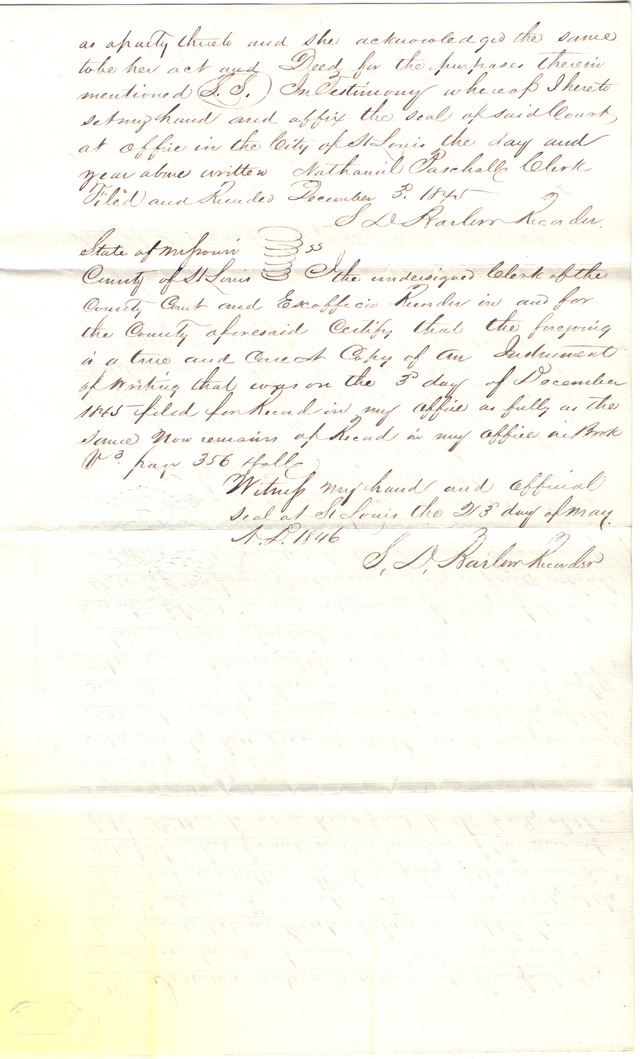 as a party thereto and she acknowledged the same
to be her act and Deed for the purposes therein
mentioned (L.S.) In Testimony whereof I hereto
set my hand and affix the seal of said Court
at office in the City of St Louis the day and
year above written Nathaniel Paschall Clerk
Filed and Recorded December 3d 1845
S D Barlow Recorder
State of Missouri
County of St Louis ss I the undersigned Clerk of the
County Court and Exofficio Recorder in and for
the County aforesaid Certify that the foregoing
is a true and Correct Copy of an Instrument
of Writing that was on the 3d day of December
1845 filed for Record in my office as fully as the
same now remains of Record in my office in Book
V3 page 356
Witness my hand and official
seal at St Louis the 23d day of May
A.D. 1846
S. D. Barlow Recorder